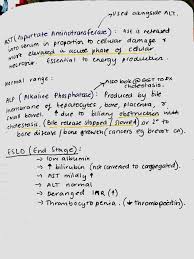 → Used alongside ALT.
AST (Aspartate Aminotransferase): AST is released
into serum in proportion to cellular damage &
more elevated in acute phase of cellular
necrosis. Essential to energy production.
Normal range:
→ Also look @ GGT to Dx
cholestasis.
ALP (Alkaline Phosphatase): Produced by bile
membrane of hepatocytes, bone, placenta, &
small bowel. ↑ due to biliary obstruction with
cholestasis. (Bile release stopped / slowed) or 2° to
bone disease / bone growth (cancers eg breast ca)
ESLD (End Stage):
→ low albumin
→ ↑ bilirubin (not converted to congegated).
→ AST mildly ↑
→ ALT normal
→ Deranged INR (↑)
→ Thrombocytopenia. (↓ thrombopoietin).